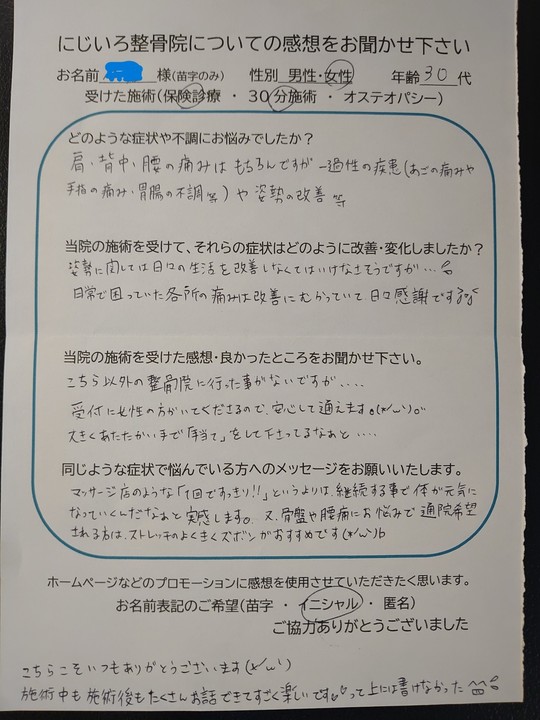 にじいろ整骨院についての感想をお聞かせ下さい
お名前 様(苗字のみ) 性別 男性・女性 年齢 30 代
受けた施術(保険診療 ・ 30分施術 ・ オステオパシー)
どのような症状や不調にお悩みでしたか?
肩・背中・腰の痛みはもちろんですが一過性の疾患(あごの痛みや
手指の痛み・胃腸の不調等)や姿勢の改善 等
当院の施術を受けて、それらの症状はどのように改善・変化しましたか?
姿勢に関しては日々の生活を改善しなくてはいけなさそうですが…
日常で困っていた各所の痛みは改善にむかっていて日々感謝です
当院の施術を受けた感想・良かったところをお聞かせ下さい。
こちら以外の整骨院に行った事がないですが....
受付に女性の方がいてくださるので、安心して通えます。(*/ω\)。
大きくあたたかい手で「手当て」をして下さってるなぁと....
同じような症状で悩んでいる方へのメッセージをお願いいたします。
マッサージ店のような「1回ですっきり!!」というよりは、継続する事で体が元気に
なっていくんだなぁと実感します。又、骨盤や腰痛にお悩みで通院希望
される方は、ストレッチのよくきくズボンがおすすめです(*/ω\)b
ホームページなどのプロモーションに感想を使用させていただきたく思います。
お名前表記のご希望(苗字 ・ イニシャル ・ 匿名)
ご協力ありがとうございました
こちらこそいつもありがとうございます(*/ω\)
施術中も施術後もたくさんお話できてすごく楽しいです って上には書けなかった